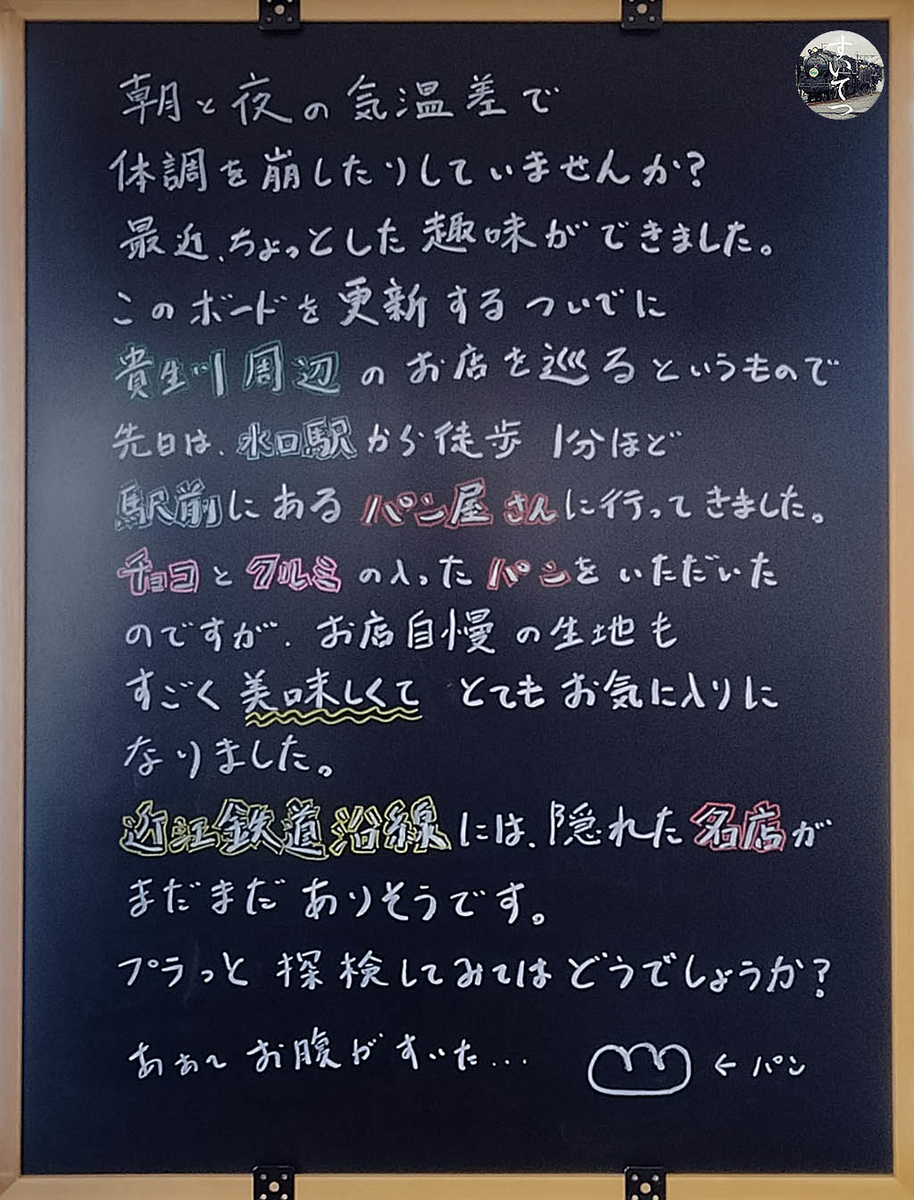 すいてつ
朝と夜の気温差で
体調を崩したりしていませんか?
最近、ちょっとした趣味ができました。
このボードを更新するついでに
貴生川周辺のお店を巡るというもので
先日は、水口駅から徒歩1分ほど
駅前にあるパン屋さんに行ってきました。
チョコとクルミの入ったパンをいただいた
のですが、お店自慢の生地も
すごく美味しくてとてもお気に入りに
なりました。
近江鉄道沿線には、隠れた名店が
まだまだありそうです。
プラっと探検してみてはどうでしょうか?
あぁ〜お腹がすいた...
←パン